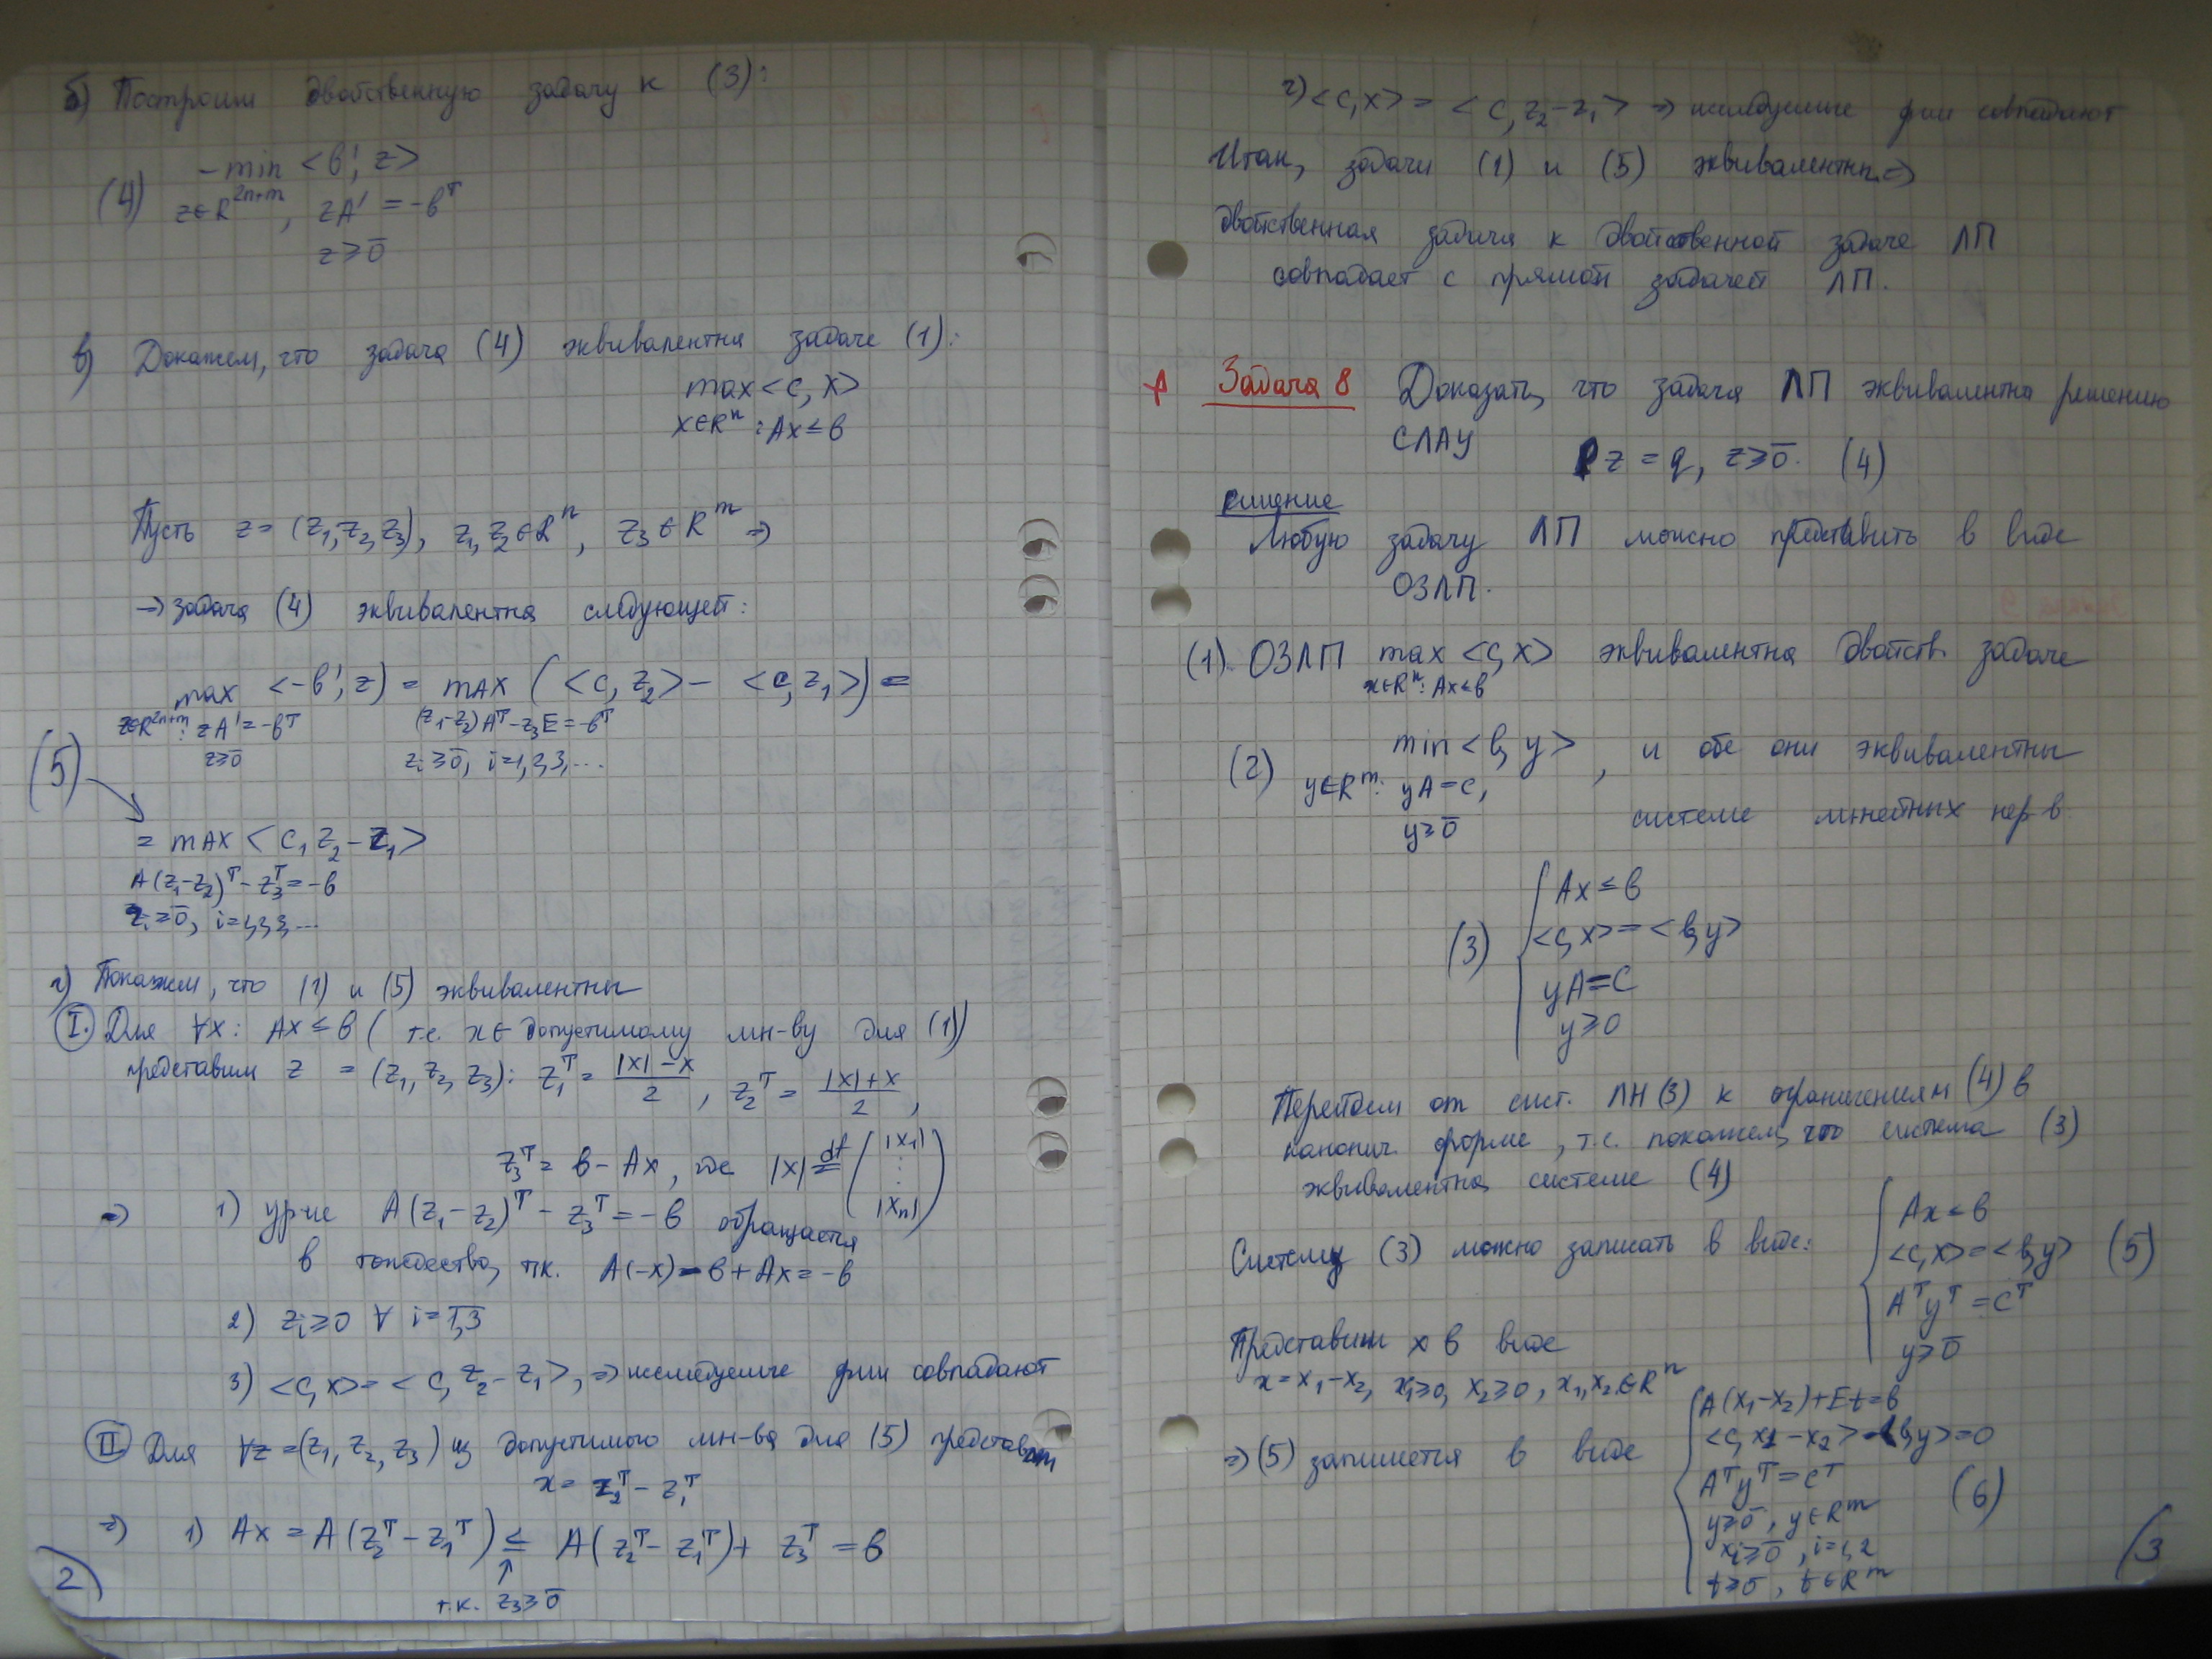 б) Построим двойственную задачу к (3):
(4) -min <b', z>
z∈R^{2n+m}, zA' = -b^T
z ≥ 0̄
в) Докажем, что задача (4) эквивалентна задаче (1):
max <c, x>
x∈R^n : Ax ≤ b
Пусть z = (z₁, z₂, z₃), z₁, z₂ ∈ R^n, z₃ ∈ R^m ⇒
⇒ задача (4) эквивалентна следующей:
max <-b', z> = max (<c, z₂> - <c, z₁>) =
z∈R^{2n+m} : zA' = -b^T (z₁-z₂)A^T - z₃E = -b^T
z ≥ 0̄ zᵢ ≥ 0̄, i=1,2,3,...
(5)
= max <c, z₂ - z₁>
A(z₁-z₂)^T - z₃^T = -b
zᵢ ≥ 0̄, i=1,2,3,...
г) Покажем, что (1) и (5) эквивалентны
I. Для ∀x: Ax ≤ b (т.е. x ∈ допустимому мн-ву для (1))
представим z = (z₁, z₂, z₃): z₁^T = (|x| - x)/2, z₂^T = (|x| + x)/2,
z₃^T = b - Ax, где |x| =^{df} (|x₁| ⋮ |xₙ|)
⇒ 1) ур-ие A(z₁-z₂)^T - z₃^T = -b обращается
в тождество, т.к. A(-x) - b + Ax = -b
2) zᵢ ≥ 0 ∀ i = 1,3
3) <c, x> = <c, z₂ - z₁>, ⇒ исследуемые ф-ии совпадают
II. Для ∀z = (z₁, z₂, z₃) из допустимого мн-ва для (5) представим
x = z₂^T - z₁^T
⇒ 1) Ax = A(z₂^T - z₁^T) ≤ A(z₂^T - z₁^T) + z₃^T = b
↑
т.к. z₃ ≥ 0̄
2)
2) <c, x> = <c, z₂ - z₁> ⇒ исследуемые ф-ии совпадают
Итак, задачи (1) и (5) эквивалентны ⇒
двойственная задача к двойственной задаче ЛП
совпадает с прямой задачей ЛП.
Задача 8 Доказать, что задача ЛП эквивалентна решению
СЛАУ Pz = q, z ≥ 0̄. (4)
решение
Любую задачу ЛП можно представить в виде
ОЗЛП.
(1). ОЗЛП max <c, x> эквивалентна двойств. задаче
x∈R^n: Ax ≤ b
(2) min <b, y>, и обе они эквивалентны
y∈R^m: yA = c,
y ≥ 0̄ системе линейных нер-в
(3) { Ax ≤ b
<c, x> = <b, y>
yA = c
y ≥ 0
Перейдем от сист. ЛН (3) к ограничениям (4) в
канонич. форме, т.е. покажем, что система (3)
эквивалентна системе (4)
Систему (3) можно записать в виде: { Ax ≤ b
<c, x> = <b, y> (5)
A^T y^T = c^T
y ≥ 0̄
Представим x в виде
x = x₁ - x₂, x₁ ≥ 0, x₂ ≥ 0, x₁, x₂ ∈ R^n
⇒ (5) запишется в виде { A(x₁-x₂) + Et = b
<c, x₁ - x₂> - <b, y> = 0
A^T y^T = c^T
y ≥ 0̄, y ∈ R^m (6)
xᵢ ≥ 0̄, i=1,2
t ≥ 0̄, t ∈ R^m
(3